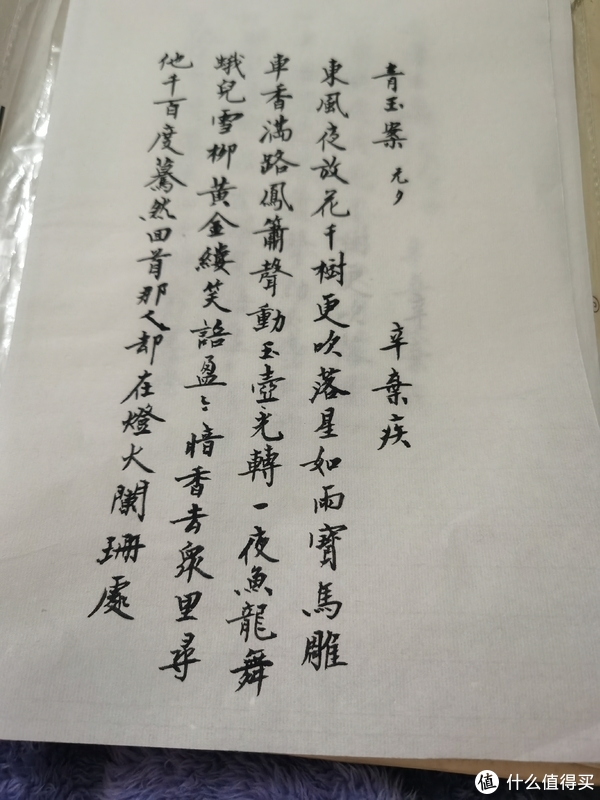 青玉案 元夕 辛棄疾
東風夜放花千樹更吹落星如雨寶馬雕
車香滿路鳳簫聲動玉壺光轉一夜魚龍舞
蛾兒雪柳黃金縷笑語盈〻暗香去衆里尋
他千百度驀然回首那人却在燈火闌珊處
值 什么值得买